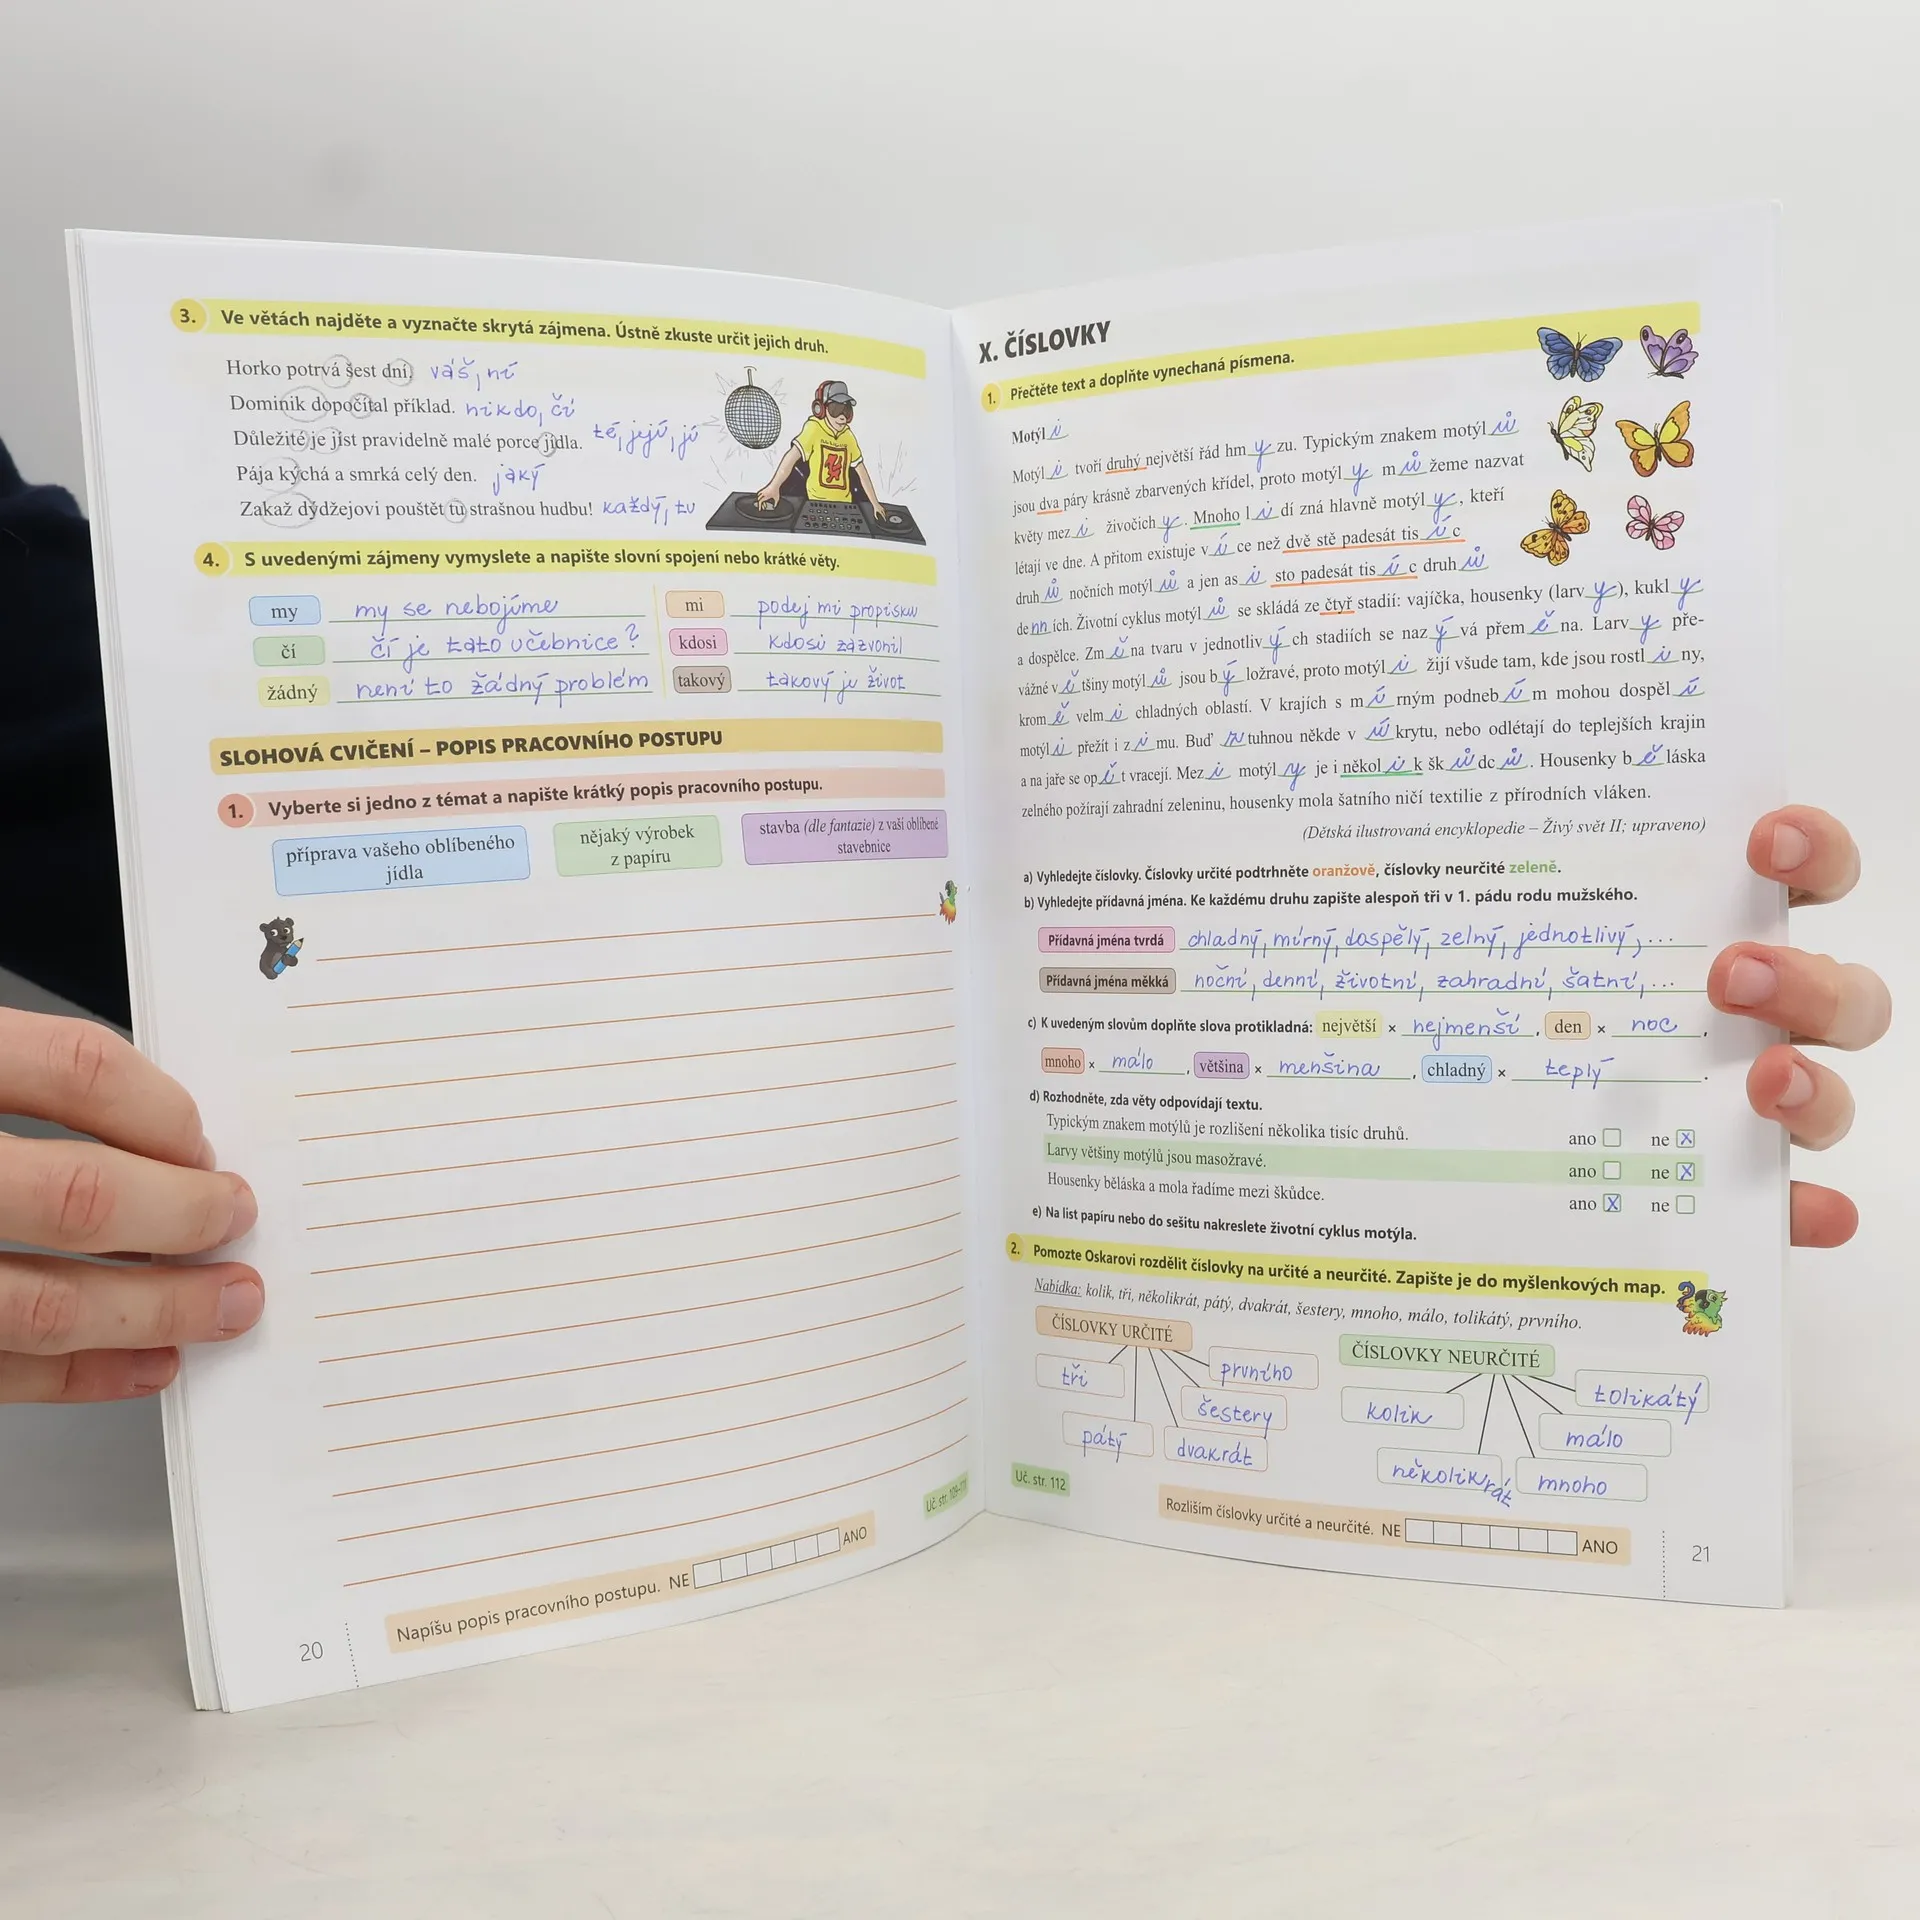 3. Ve větách najděte a vyznačte skrytá zájmena. Ústně zkuste určit jejich druh.
Horko potrvá šest dní. váš, ní
Dominik dopočítal příklad. nikdo, čí
Důležité je jíst pravidelně malé porce jídla. té, její, jí
Pája kýchá a smrká celý den. jaký
Zakaž dýdžejovi pouštět tu strašnou hudbu! každý, tu
4. S uvedenými zájmeny vymyslete a napište slovní spojení nebo krátké věty.
my my se nebojíme mi podej mi propisku
čí čí je tato učebnice? kdosi kdosi zazvonil
žádný není to žádný problém takový takový je život
SLOHOVÁ CVIČENÍ – POPIS PRACOVNÍHO POSTUPU
1. Vyberte si jedno z témat a napište krátký popis pracovního postupu.
příprava vašeho oblíbeného
jídla
nějaký výrobek
z papíru
stavba (dle fantazie) z vaší oblíbené
stavebnice
Uč. str. 109–111
Napíšu popis pracovního postupu. NE ANO
20
X. ČÍSLOVKY
1. Přečtěte text a doplňte vynechaná písmena.
Motýl i
Motýl i tvoří druhý největší řád hm y zu. Typickým znakem motýl ů
jsou dva páry krásně zbarvených křídel, proto motýl y m ů žeme nazvat
květy mez i živočich y. Mnoho l i dí zná hlavně motýl y, kteří
létají ve dne. A přitom existuje v í ce než dvě stě padesát tis í c
druh ů nočních motýl ů a jen as i sto padesát tis í c druh ů
de nn ích. Životní cyklus motýl ů se skládá ze čtyř stadií: vajíčka, housenky (larv y), kukl y
a dospělce. Zm ě na tvaru v jednotliv ý ch stadiích se naz ý vá přem ě na. Larv y pře-
vážné v ě tšiny motýl ů jsou b ý ložravé, proto motýl i žijí všude tam, kde jsou rostl i ny,
krom ě velm i chladných oblastí. V krajích s m í rným podneb í m mohou dospěl í
motýl i přežít i z i mu. Buď z tuhnou někde v ú krytu, nebo odlétají do teplejších krajin
a na jaře se op ě t vracejí. Mez i motýl y je i někol i k šk ů dc ů. Housenky b ě láska
zelného požírají zahradní zeleninu, housenky mola šatního ničí textilie z přírodních vláken.
(Dětská ilustrovaná encyklopedie – Živý svět II; upraveno)
a) Vyhledejte číslovky. Číslovky určité podtrhněte oranžově, číslovky neurčité zeleně.
b) Vyhledejte přídavná jména. Ke každému druhu zapište alespoň tři v 1. pádu rodu mužského.
Přídavná jména tvrdá chladný, mírný, dospělý, zelný, jednotlivý, ...
Přídavná jména měkká noční, denní, životní, zahradní, šatní, ...
c) K uvedeným slovům doplňte slova protikladná: největší × nejmenší, den × noc,
mnoho × málo, většina × menšina, chladný × teplý.
d) Rozhodněte, zda věty odpovídají textu.
Typickým znakem motýlů je rozlišení několika tisíc druhů. ano ne X
Larvy většiny motýlů jsou masožravé. ano ne X
Housenky běláska a mola řadíme mezi škůdce. ano X ne
e) Na list papíru nebo do sešitu nakreslete životní cyklus motýla.
2. Pomozte Oskarovi rozdělit číslovky na určité a neurčité. Zapište je do myšlenkových map.
Nabídka: kolik, tři, několikrát, pátý, dvakrát, šestery, mnoho, málo, tolikátý, prvního.
ČÍSLOVKY URČITÉ
tři
prvního
šestery
pátý
dvakrát
ČÍSLOVKY NEURČITÉ
kolik
tolikátý
málo
několikrát
mnoho
Uč. str. 112
Rozliším číslovky určité a neurčité. NE ANO
21